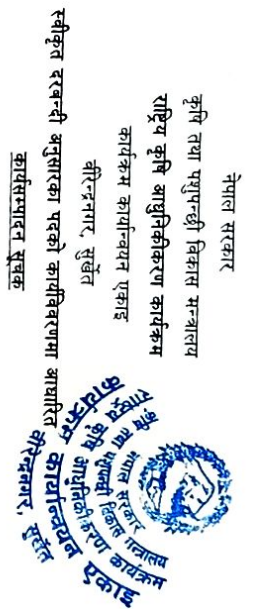 नेपाल सरकार
कृषि तथा पशुपन्छी विकास मन्त्रालय
राष्ट्रिय कृषि आधुनिकीकरण कार्यक्रम
कार्यक्रम कार्यान्वयन एकाइ
वीरेन्द्रनगर, सुर्खेत
स्वीकृत दरबन्दी अनुसारका पदको कार्यविवरणमा आधारित
कार्यसम्पादन सूचक
नेपाल सरकार
कृषि तथा पशुपन्छी विकास मन्त्रालय
राष्ट्रिय कृषि आधुनिकीकरण कार्यक्रम
कार्यक्रम कार्यान्वयन एकाइ
वीरेन्द्रनगर, सुर्खेत